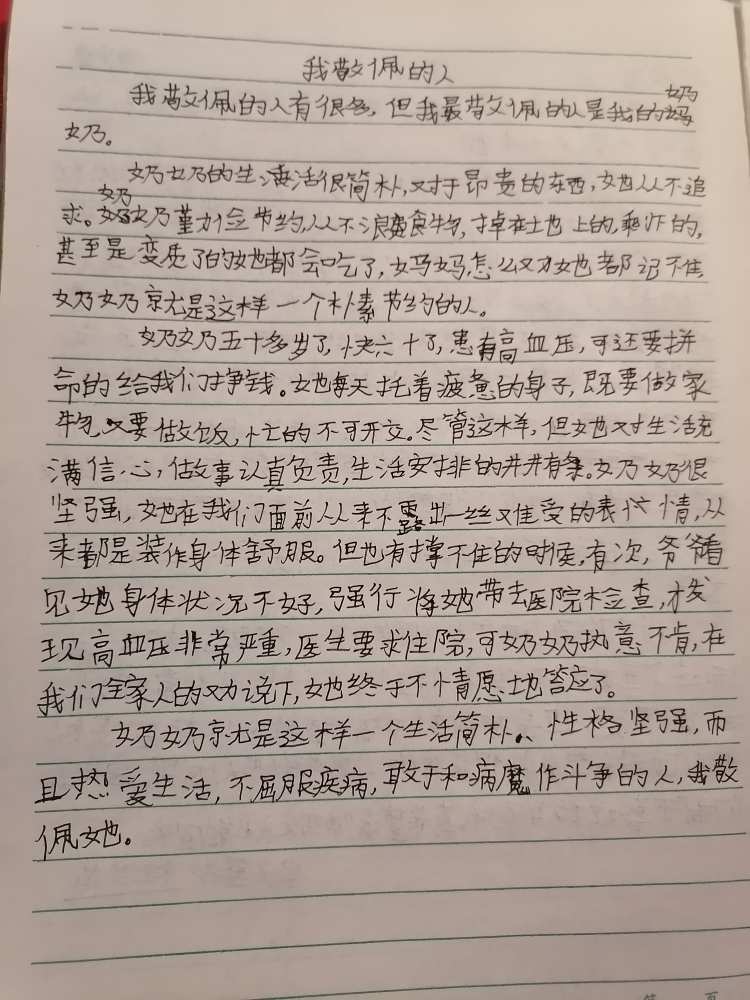 我敬佩的人
我敬佩的人有很多，但我最敬佩的人是我的奶
奶。
奶奶的生活很简朴，对于昂贵的东西，她从不追
求。奶奶勤俭节约，从不浪费食物，掉在土地上的，剩下的，
甚至是变质了的她都会吃了，妈妈怎么劝她都记不住，
奶奶就是这样一个朴素节约的人。
奶奶五十多岁了，快六十了，患有高血压，可还要拼
命的给我们挣钱。她每天托着疲惫的身子，既要做家
物又要做饭，忙的不可开交。尽管这样，但她对生活充
满信心，做故事认真负责，生活安排的井井有条。奶奶很
坚强，她在我们面前从来不露出一丝难受的表情，从
来都是装作身体舒服。但也有撑不住的时候，有次，爷爷看
见她身体状况不好，强行将她带去医院检查，才发
现高血压非常严重，医生要求住院，可奶奶执意不肯，在
我们全家人的劝说下，她终于不情愿地答应了。
奶奶就是这样一个生活简朴、性格坚强，而
且热爱生活，不屈服疾病，敢于和病魔作斗争的人，我敬
佩她。